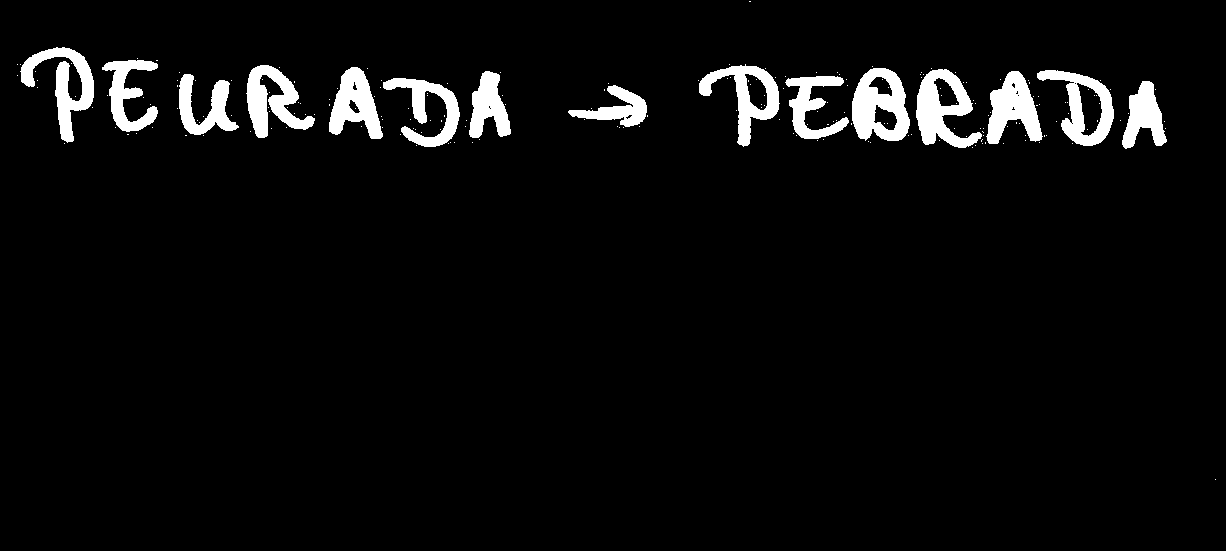 PEURADA → PEBRADA